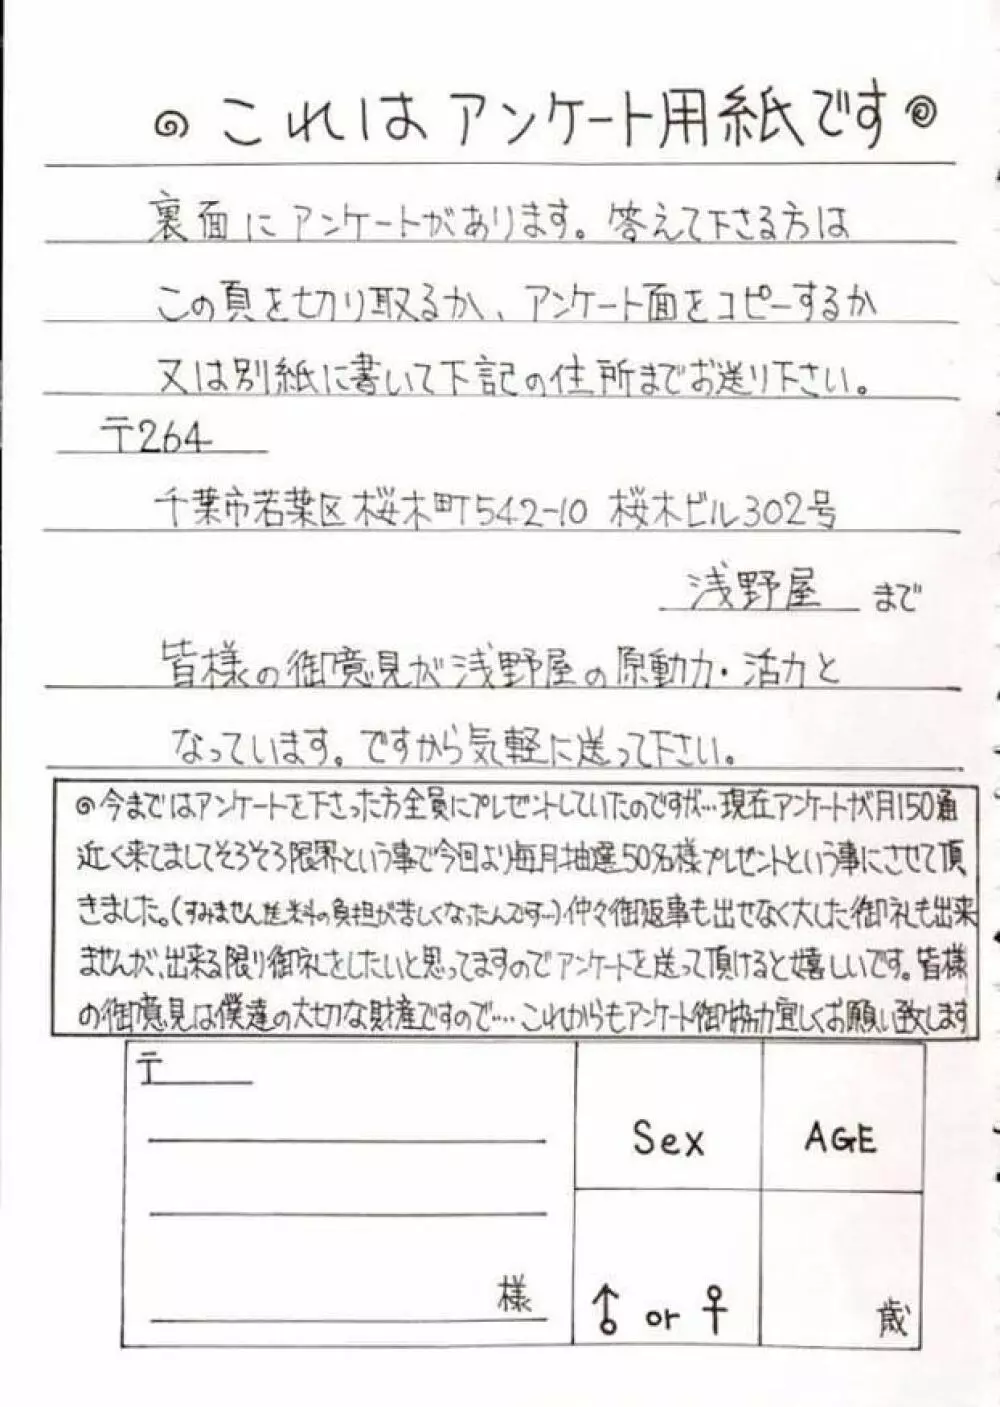 これはアンケート用紙です
裏面にアンケートがあります。答えて下さる方は
この頁を切り取るか、アンケート面をコピーするか
又は別紙に書いて下記の住所までお送り下さい。
〒264
千葉市若葉区桜木町542-10 桜木ビル302号
浅野屋 まで
皆様の御意見が浅野屋の原動力・活力と
なっています。ですから気軽に送って下さい。
◎今まではアンケートを下さった方全員にプレゼントしていたのですが…現在アンケートが月150通
近く来てましてそろそろ限界という事で今回より毎月抽選50名様プレゼントという事にさせて頂
きました。(すみません送料の負担が苦しくなったんです…)仲々御返事も出せなく大した御礼も出来
ませんが、出来る限り御礼をしたいと思ってますのでアンケートを送って頂けると嬉しいです。皆様
の御意見は僕達の大切な財産ですので…‥これからもアンケート御協力宜しくお願い致します
〒
Sex
AGE
様
♂ or ♀
歳